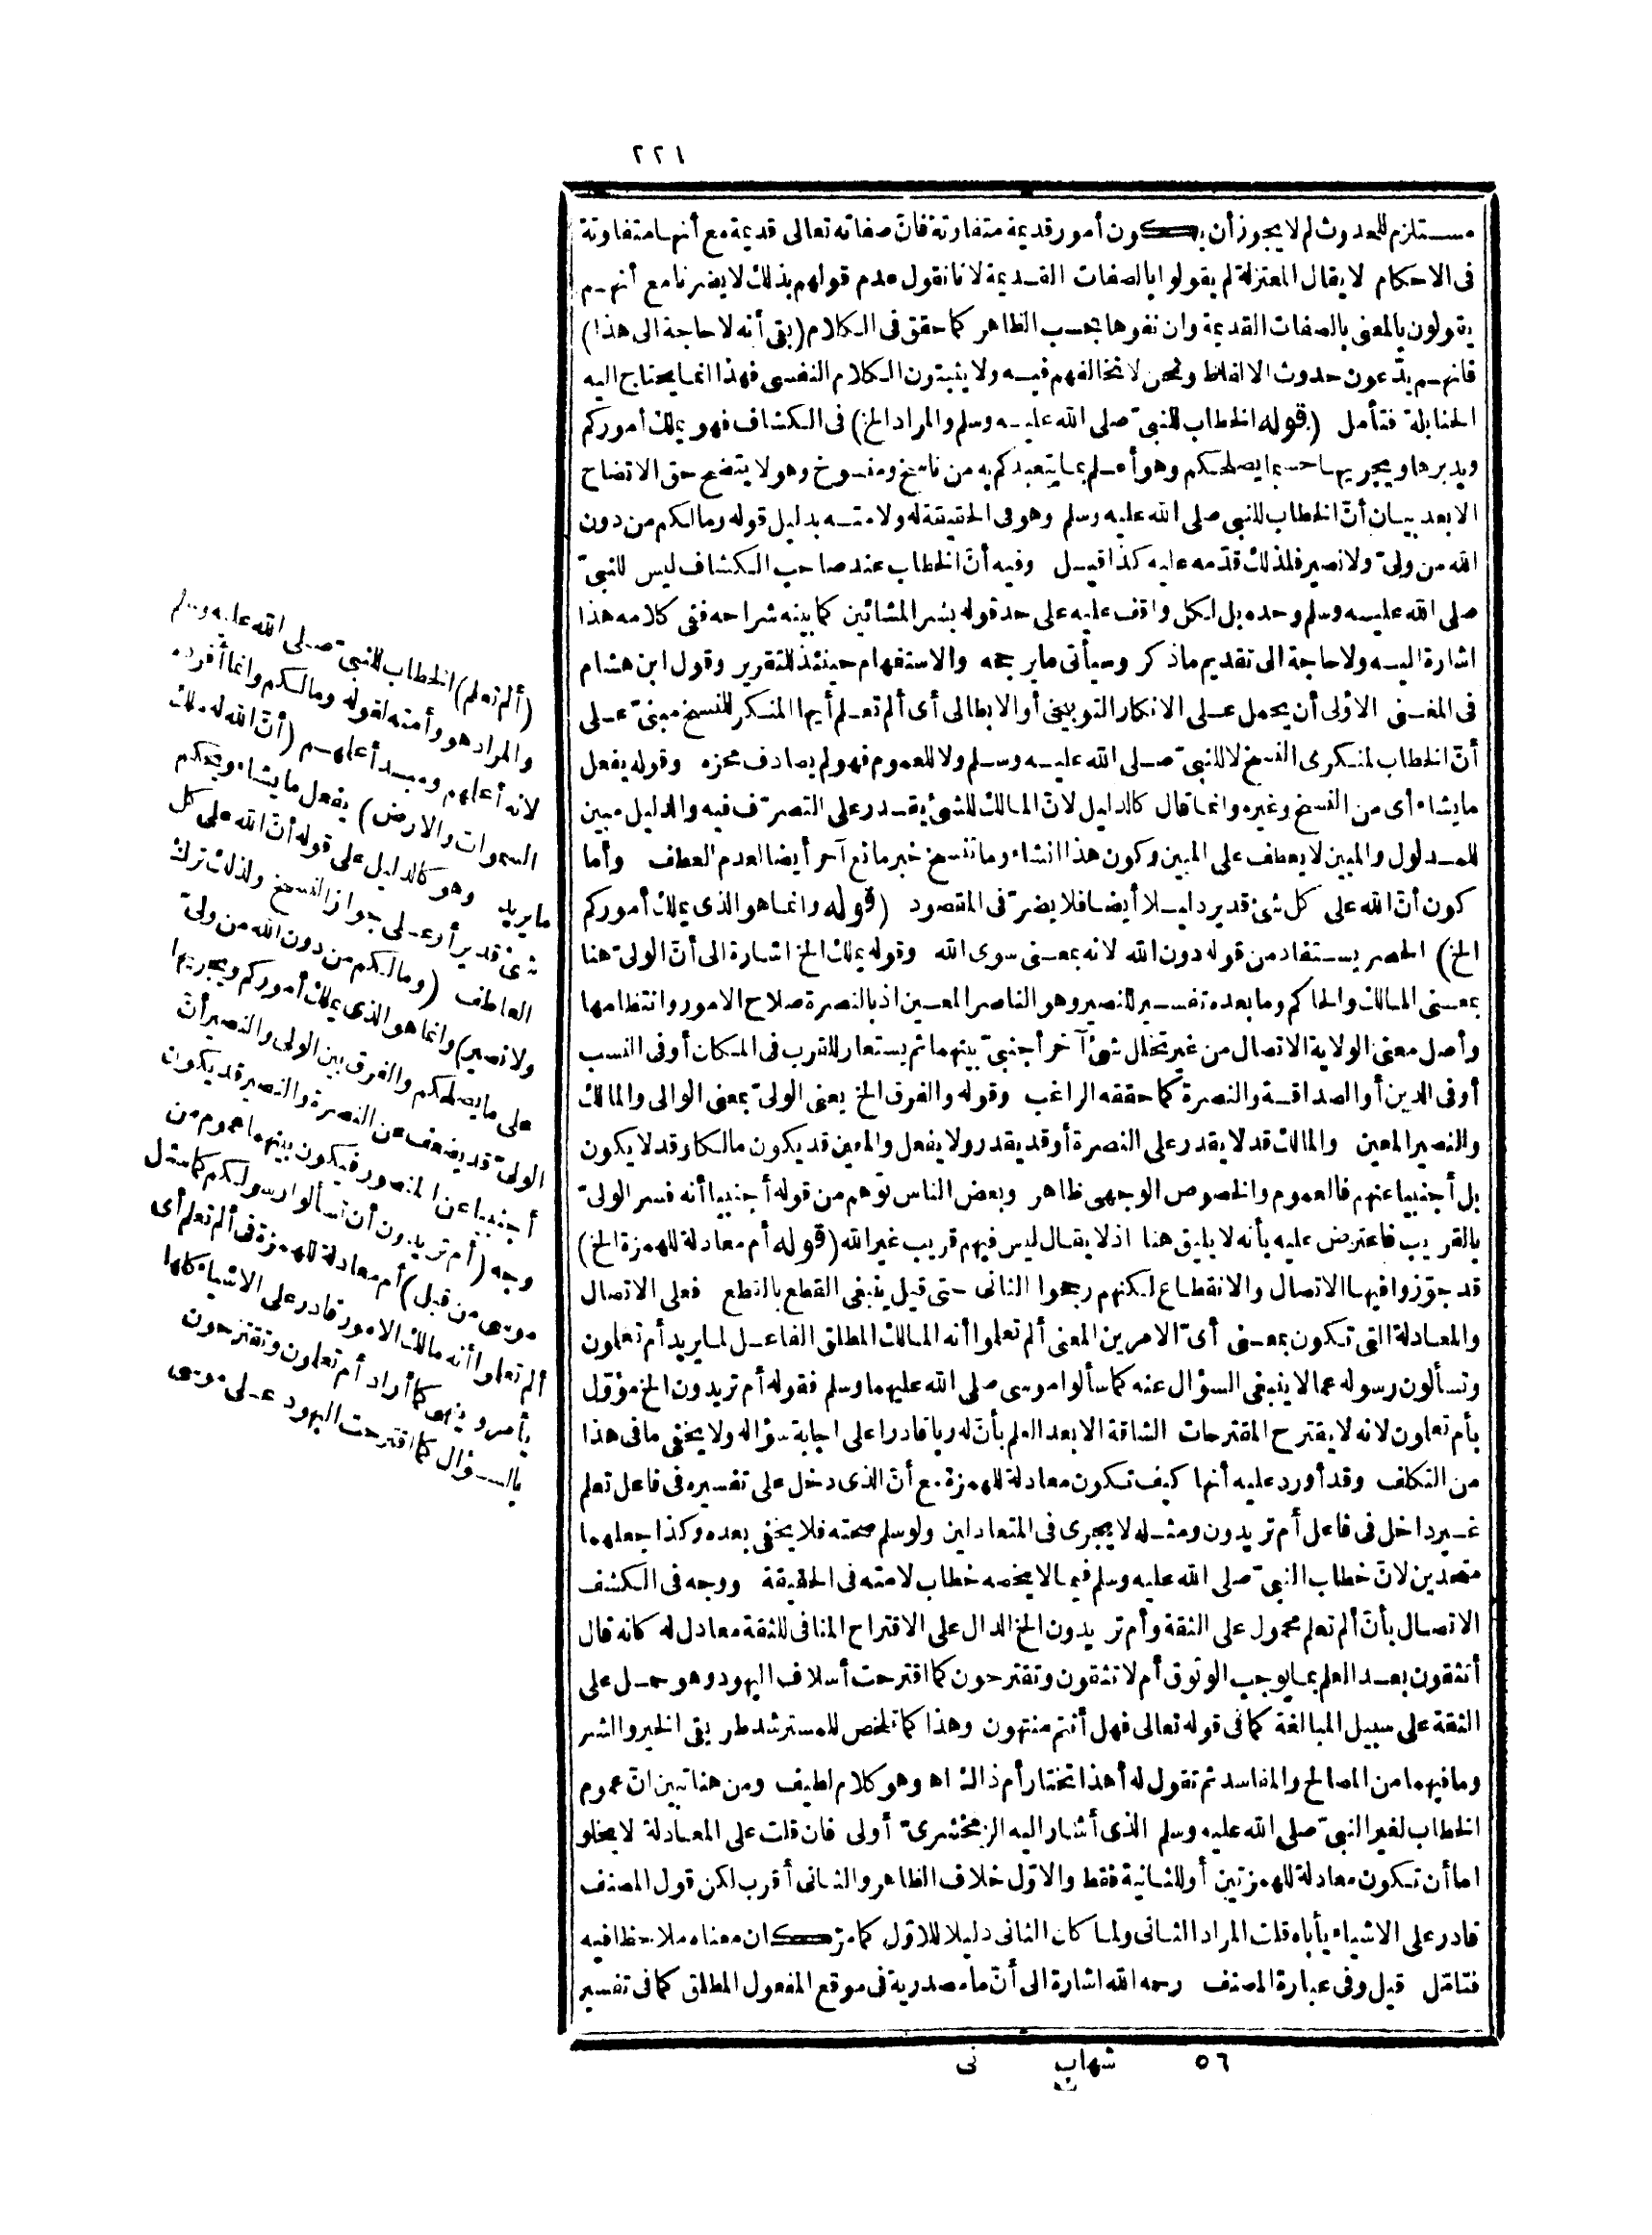 ٢٢١
مستلزم للحدوث لم لا يجوز أن يكون أمور قديمة متفاوتة فانّ صفاته تعالى قديمة مع أنهامتفاوتة
فى الاحكام لا يقال المعتزلة لم يقولوا بالصفات القديمة لانانقول عدم قولهم بذلك لا يضرنا مع أنهم
يقولون بالمعنى بالصفات القديمة وان نفوها بحسب الظاهر كما حقق فى الكلام (بقى أنه لا حاجة الى هذا)
فانهم يدّعون حدوث الالفاظ ونحن لا نخالفهم فيه ولا يثبتون الكلام النفسى فهذا انما يحتاج اليه
الحنابلة فتأمل (قوله الخطاب للنبىّ صلى الله عليه وسلم والمراد الخ) فى الكشاف فهو يملك أموركم
ويدبرها ويجريها حسبما يصلحكم وهو أعلم بما يتعبدكم به من ناسخ ومنسوخ وهو لا يتضح حق الاتضاح
الا بعد بيان أنّ الخطاب للنبى صلى الله عليه وسلم وهو فى الحقيقة له ولامته بدليل قوله ومالكم من دون
الله من ولىّ ولا نصير فلذلك قدّمه عليه كذا قيل وفيه أنّ الخطاب عند صاحب الكشاف ليس للنبىّ
صلى الله عليه وسلم وحده بل لكل واقف عليه على حد قوله بشر المشائين كما بينه شراحه ففى كلامه هذا
اشارة اليه ولا حاجة الى تقديم ماذكر وسيأتى ما يرجحه والاستفهام حينئذ للتقرير وقول ابن هشام
فى المغنى الاولى أن يحمل على الانكار التوبيخى أو الابطالى أى ألم تعلم أيها المنكر للنسخ مبنىّ على
أنّ الخطاب لمنكرى النسخ لا للنبىّ صلى الله عليه وسلم ولا للعموم فهو لم يصادف محزه وقوله يفعل
ما يشاء أى من النسخ وغيره وانما قال كالدليل لانّ المالك للشئ يقدر على التصرّف فيه والدليل مبين
للمدلول والمبين لا يعطف على المبين وكون هذا انشاء وما ننسخ خبر مانع آخر أيضا لعدم العطف وأما
كون أنّ الله على كل شئ قدير دليلا أيضا فلا يضرّ فى المقصود (قوله وانما هو الذى يملك أموركم
الخ) الحصر يستفاد من قوله دون الله لانه بمعنى سوى الله وقوله يملك الخ اشارة الى أنّ الولىّ هنا
بمعنى المالك والحاكم وما بعده تفسير للنصير وهو الناصر المعين اذ بالنصرة صلاح الامور وانتظامها
وأصل معنى الولاية الاتصال من غير تخلل شئ آخر أجنبىّ بينهما ثم يستعار للقرب فى المكان أو فى النسب
أو فى الدين أو الصداقة والنصرة كما حققه الراغب وقوله والفرق الخ يعنى الولىّ بمعنى الوالى والمالك
والنصير المعين والمالك قد لا يقدر على النصرة أو قد يقدر ولا يفعل والمعين قد يكون مالكا وقد لا يكون
بل أجنبيا عنهم فالعموم والخصوص الوجهى ظاهر وبعض الناس توهم من قوله أجنبيا أنه فسر الولىّ
بالقريب فاعترض عليه بأنه لا يليق هنا اذ لا يقال ليس فيهم قريب غير الله (قوله أم معادلة للهمزة الخ)
قد جوّزوا فيها الاتصال والانقطاع لكنهم رجحوا الثانى حتى قيل ينبغى القطع بالقطع فعلى الاتصال
والمعادلة التى تكون بمعنى أىّ الامرين المعنى ألم تعلموا أنه المالك المطلق الفاعل لما يريد أم تعلمون
وتسألون رسوله عما لا ينبغى السؤال عنه كما سألوا موسى صلى الله عليهما وسلم فقوله أم تريدون الخ مؤوّل
بأم تعلمون لانه لا يقترح المقترحات الشاقة الا بعد العلم بأنّ له ربا قادرا على اجابة سؤاله ولا يخفى ما فى هذا
من التكلف وقد أورد عليه أنها كيف تكون معادلة للهمزة مع أنّ الذى دخل على تفسيره فى فاعل تعلم
غير داخل فى فاعل أم تريدون ومثله لا يجرى فى المتعادلين ولو سلم صحته فلا يخفى بعده وكذا جعلهما
متحدين لانّ خطاب النبىّ صلى الله عليه وسلم فيما لا يخصه خطاب لامته فى الحقيقة ووجه فى الكشف
الاتصال بأنّ ألم تعلم محمول على الثقة وأم تريدون الخ الدال على الاقتراح المنافى للثقة معادل له كانه قال
أتثقون بعد العلم بما يوجب الوثوق أم لا تثقون وتقترحون كما اقترحت أسلاف اليهود وهو حمل على
الثقة على سبيل المبالغة كما فى قوله تعالى فهل أنتم منتهون وهذا كما تلخص للمسترشد طريقى الخير والشر
وما فيهما من المصالح والمفاسد ثم تقول له أهذا تختار أم ذاك اه وهو كلام لطيف ومن هنا تبين انّ عموم
الخطاب لغير النبىّ صلى الله عليه وسلم الذى أشار اليه الزمخشرىّ أولى فان قلت على المعادلة لا يخلو
اما أن تكون معادلة للهمزتين أو للثانية فقط والاوّل خلاف الظاهر والثانى أقرب لكن قول المصنف
قادر على الاشياء يأباه قلت المراد الثانى ولما كان الثانى دليلا للاوّل كما مرّ كان معناه ملاحظا فيه
فتأمّل قيل وفى عبارة المصنف رحمه الله اشارة الى أنّ ما مصدرية فى موقع المفعول المطلق كما فى تفسير
٥٦ شهاب نى
(ألم تعلم) الخطاب للنبىّ صلى الله عليه وسلم
والمراد هو وأمته لقوله ومالكم وانما أفرده
لانه أعلمهم ومبدأ علمهم (أنّ الله له ملك
السموات والارض) يفعل ما يشاء ويحكم
ما يريد وهو كالدليل على قوله أنّ الله على كل
شئ قدير أو على جواز النسخ ولذلك ترك
العاطف (ومالكم من دون الله من ولىّ
ولا نصير) وانما هو الذى يملك أموركم ويجريها
على ما يصلحكم والفرق بين الولى والنصير أنّ
الولىّ قد يضعف عن النصرة والنصير قد يكون
أجنبيا عن المنصور فيكون بينهما عموم من
وجه (أم تريدون أن تسألوا رسولكم كما سئل
موسى من قبل) أم معادلة للهمزة فى ألم تعلم أى
ألم تعلموا أنه مالك الامور قادر على الاشياء كلها
يأمر وينهى كما أراد أم تعلمون وتقترحون
بالسؤال كما اقترحت اليهود على موسى